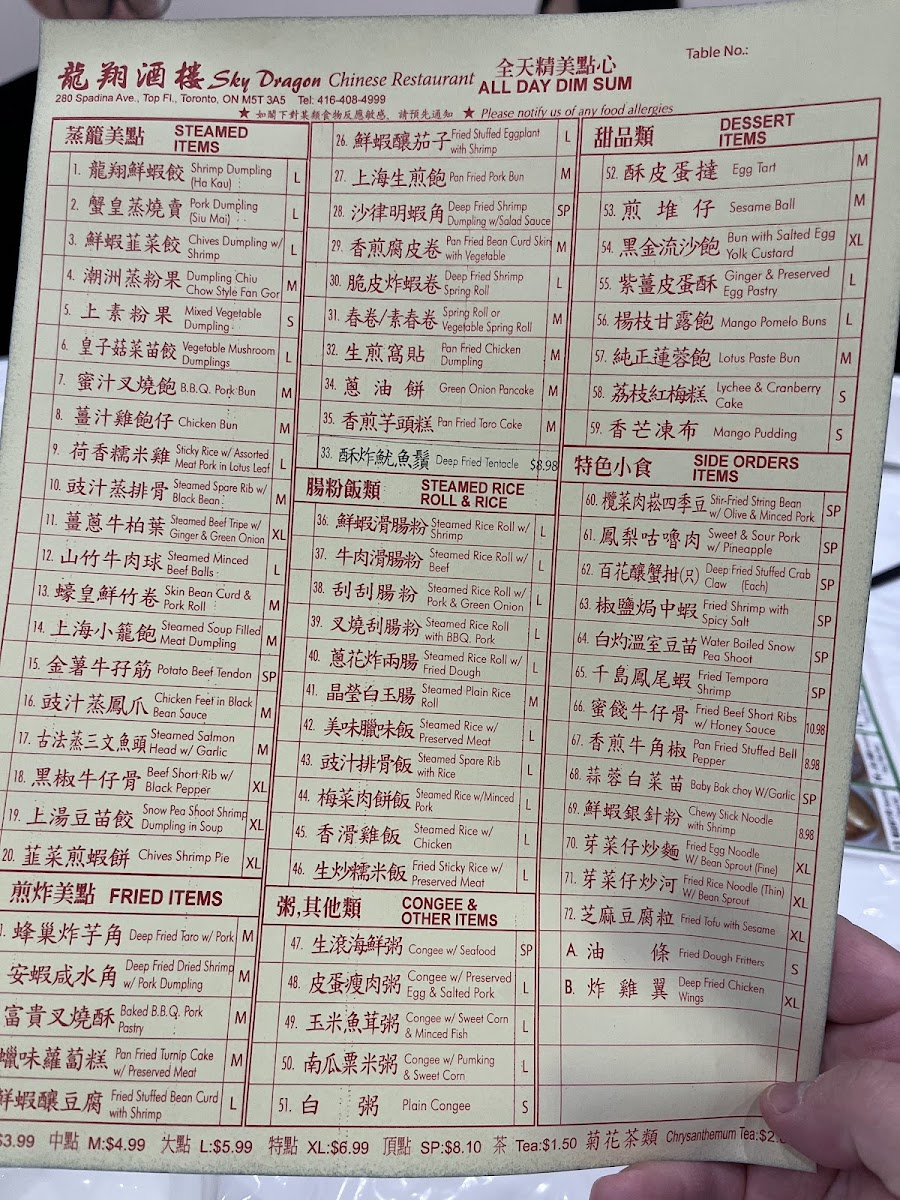 龍翔酒樓 Sky Dragon Chinese Restaurant
280 Spadina Ave., Top Fl., Toronto, ON M5T 3A5 Tel: 416-408-4999
全天精美點心
ALL DAY DIM SUM
Table No.:
★ 如閣下對某類食物反應敏感, 請預先通知 ★ Please notify us of any food allergies
蒸籠美點 STEAMED ITEMS
1. 龍翔鮮蝦餃 Shrimp Dumpling (Ha Kau) L
2. 蟹皇蒸燒賣 Pork Dumpling (Siu Mai) L
3. 鮮蝦韮菜餃 Chives Dumpling w/ Shrimp L
4. 潮洲蒸粉果 Dumpling Chiu Chow Style Fan Gor M
5. 上素粉果 Mixed Vegetable Dumpling S
6. 皇子菇菜苗餃 Vegetable Mushroom Dumplings L
7. 蜜汁叉燒飽 B.B.Q. Pork Bun M
8. 薑汁雞飽仔 Chicken Bun M
9. 荷香糯米雞 Sticky Rice w/ Assorted Meat Pork in Lotus Leaf L
10. 豉汁蒸排骨 Steamed Spare Rib w/ Black Bean M
11. 薑蔥牛柏葉 Steamed Beef Tripe w/ Ginger & Green Onion XL
12. 山竹牛肉球 Steamed Minced Beef Balls L
13. 蠔皇鮮竹卷 Skin Bean Curd & Pork Roll M
14. 上海小籠飽 Steamed Soup Filled Meat Dumpling M
15. 金薯牛孖筋 Potato Beef Tendon SP
16. 豉汁蒸鳳爪 Chicken Feet in Black Bean Sauce M
17. 古法蒸三文魚頭 Steamed Salmon Head w/ Garlic M
18. 黑椒牛仔骨 Beef Short Rib w/ Black Pepper XL
19. 上湯豆苗餃 Snow Pea Shoot Shrimp Dumpling in Soup XL
20. 韮菜煎蝦餅 Chives Shrimp Pie XL
煎炸美點 FRIED ITEMS
蜂巢炸芋角 Deep Fried Taro w/ Pork M
安蝦咸水角 Deep Fried Dried Shrimp w/ Pork Dumpling M
富貴叉燒酥 Baked B.B.Q. Pork Pastry M
蠟味蘿蔔糕 Pan Fried Turnip Cake w/ Preserved Meat M
鮮蝦釀豆腐 Fried Stuffed Bean Curd with Shrimp L
26. 鮮蝦釀茄子 Fried Stuffed Eggplant with Shrimp L
27. 上海生煎飽 Pan Fried Pork Bun M
28. 沙律明蝦角 Deep Fried Shrimp Dumpling w/Salad Sauce SP
29. 香煎腐皮卷 Pan Fried Bean Curd Skin with Vegetable M
30. 脆皮炸蝦卷 Deep Fried Shrimp Spring Roll L
31. 春卷/素春卷 Spring Roll or Vegetable Spring Roll M
32. 生煎窩貼 Pan Fried Chicken Dumpling M
34. 蔥油餅 Green Onion Pancake M
35. 香煎芋頭糕 Pan Fried Taro Cake M
33. 酥炸魷魚鬚 Deep Fried Tentacle $8.98
腸粉飯類 STEAMED RICE ROLL & RICE
36. 鮮蝦滑腸粉 Steamed Rice Roll w/ Shrimp L
37. 牛肉滑腸粉 Steamed Rice Roll w/ Beef L
38. 刮刮腸粉 Steamed Rice Roll w/ Pork & Green Onion L
39. 叉燒刮腸粉 Steamed Rice Roll with BBQ. Pork L
40. 蔥花炸兩腸 Steamed Rice Roll w/ Fried Dough L
41. 晶瑩白玉腸 Steamed Plain Rice Roll M
42. 美味臘味飯 Steamed Rice w/ Preserved Meat L
43. 豉汁排骨飯 Steamed Spare Rib with Rice L
44. 梅菜肉餅飯 Steamed Rice w/Minced Pork L
45. 香滑雞飯 Steamed Rice w/ Chicken L
46. 生炒糯米飯 Fried Sticky Rice w/ Preserved Meat L
粥,其他類 CONGEE & OTHER ITEMS
47. 生滾海鮮粥 Congee w/ Seafood SP
48. 皮蛋瘦肉粥 Congee w/ Preserved Egg & Salted Pork L
49. 玉米魚茸粥 Congee w/ Sweet Corn & Minced Fish L
50. 南瓜粟米粥 Congee w/ Pumking & Sweet Corn L
51. 白粥 Plain Congee S
甜品類 DESSERT ITEMS
52. 酥皮蛋撻 Egg Tart M
53. 煎堆仔 Sesame Ball M
54. 黑金流沙飽 Bun with Salted Egg Yolk Custard XL
55. 紫薑皮蛋酥 Ginger & Preserved Egg Pastry L
56. 楊枝甘露飽 Mango Pomelo Buns L
57. 純正蓮蓉飽 Lotus Paste Bun M
58. 荔枝紅梅糕 Lychee & Cranberry Cake S
59. 香芒凍布 Mango Pudding S
特色小食 SIDE ORDERS ITEMS
60. 欖菜肉崧四季豆 Stir-Fried String Bean w/ Olive & Minced Pork SP
61. 鳳梨咕嚕肉 Sweet & Sour Pork w/ Pineapple SP
62. 百花釀蟹拑(只) Deep Fried Stuffed Crab Claw (Each) SP
63. 椒鹽焗中蝦 Fried Shrimp with Spicy Salt SP
64. 白灼溫室豆苗 Water Boiled Snow Pea Shoot SP
65. 千島鳳尾蝦 Fried Tempora Shrimp SP
66. 蜜餞牛仔骨 Fried Beef Short Ribs w/ Honey Sauce 10.98
67. 香煎牛角椒 Pan Fried Stuffed Bell Pepper 8.98
68. 蒜蓉白菜苗 Baby Bak choy W/Garlic SP
69. 鮮蝦銀針粉 Chewy Stick Noodle with Shrimp 8.98
70. 芽菜仔炒麵 Fried Egg Noodle W/ Bean Sprout (Fine) XL
71. 芽菜仔炒河 Fried Rice Noodle (Thin) W/ Bean Sprout XL
72. 芝麻豆腐粒 Fried Tofu with Sesame XL
A. 油條 Fried Dough Fritters S
B. 炸雞翼 Deep Fried Chicken Wings XL
$3.99 中點 M:$4.99 大點 L:$5.99 特點 XL:$6.99 頂點 SP:$8.10 茶 Tea:$1.50 菊花茶類 Chrysanthemum Tea:$2.